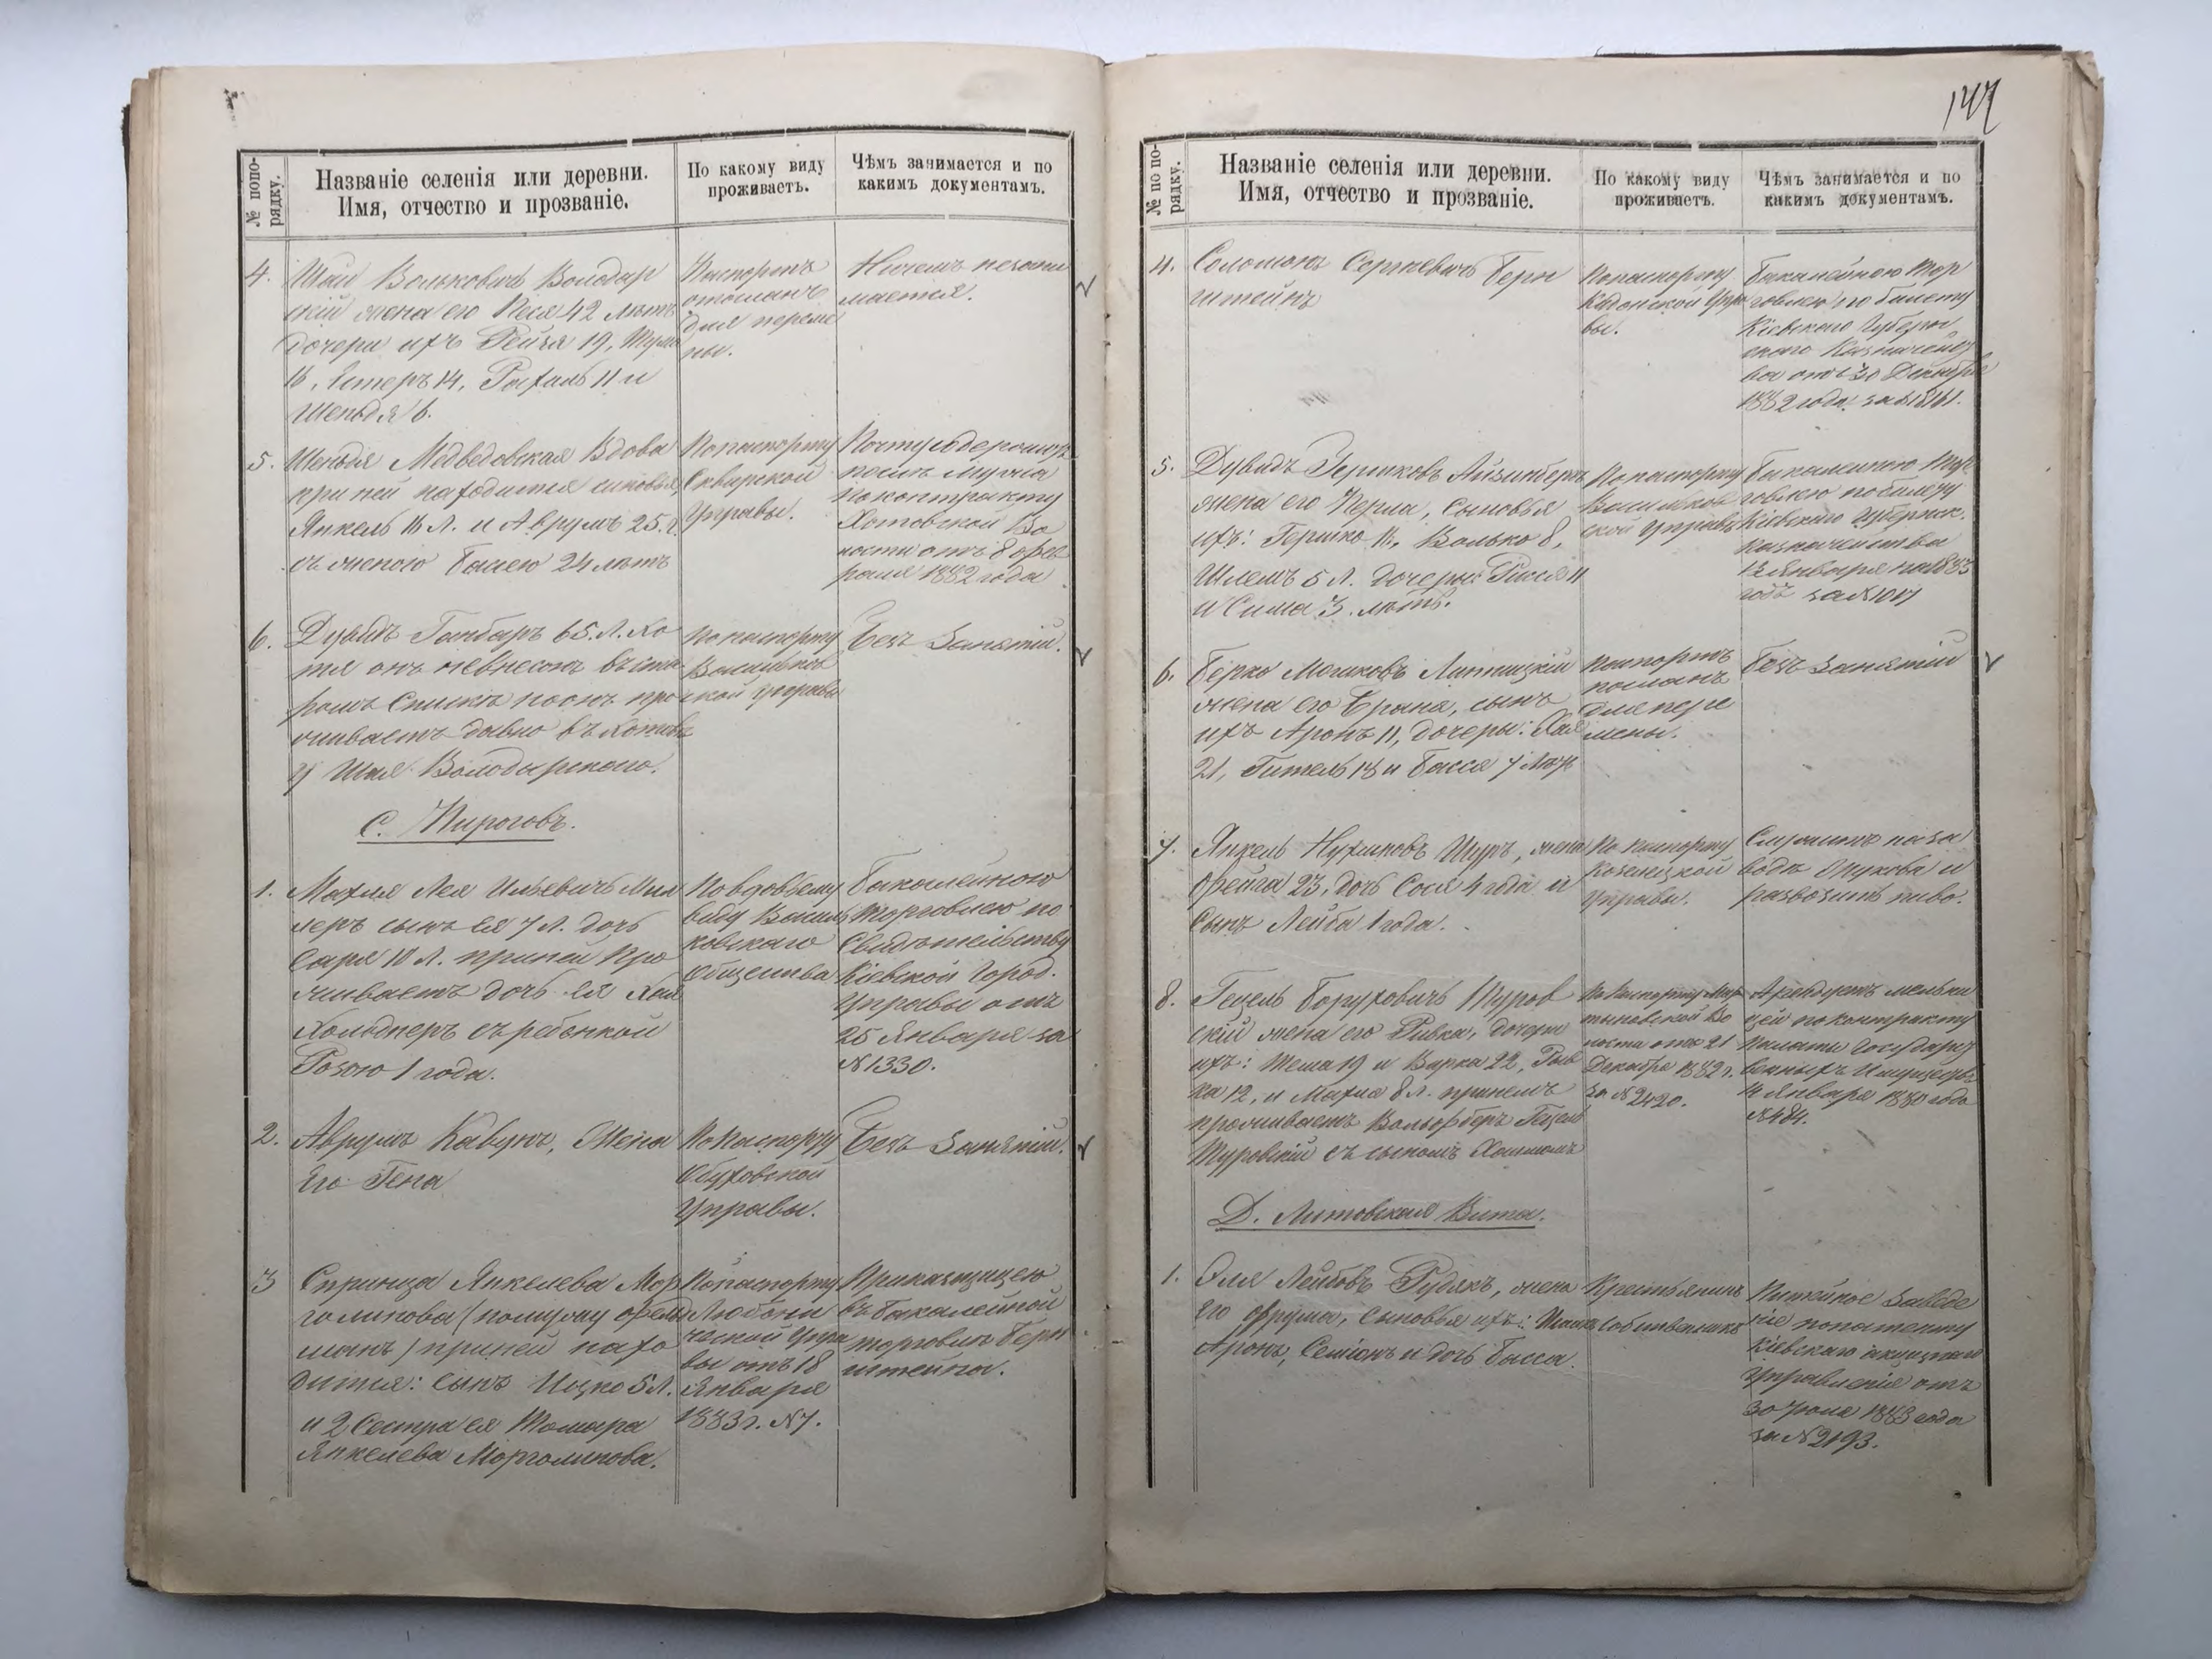 147
№ попо-
рядку.
Названіе селенія или деревни.
Имя, отчество и прозваніе.
По какому виду
проживаетъ.
Чѣмъ занимается и по
какимъ документамъ.
4. Шая Вольковичъ Володар
скій жена его Песя 42 лѣтъ
дочери ихъ Рейзя 19,
16, Эстеръ 14, Рахиль 11 и
Шендля 6.
Паспортъ
отосланъ
для переме
ны.
Ничемъ незани
мается.
5. Шендля Медведовская Вдова
при ней находится сыновья
Янкель 16 Л. и Аврумъ 25. г.
съ женою Басею 24 лѣтъ
По паспорту
Сквирской
Управы.
по контракту
Хотовской Во
лости отъ 8 Фев
раля 1882 года
6. Дувидъ Гамбаръ 65. Л. Хо
тя онъ невнесенъ въ
ромъ Спискѣ но онъ про
живаетъ давно въ Хотовѣ
у Шая Володарского.
По паспорту
Васильков
ской Управы
Безъ Занятій.
С. Пироговъ.
1. Махля Лея Ильевичъ Мил
леръ сынъ ея 7 Л. дочь
Сара 10 Л. при ней Про
живаетъ дочь ея Хая
Хольднеръ съ ребенкой
Розою 1 года.
По вдовьему
виду Василь
ковскаго
Общества
Бакалейною
торговлею по
Свидѣтельству
Кіевской Город.
Управы отъ
25 Января за
№ 1330.
2. Аврумъ Кавунъ, Жена
Его Гена
По Паспорту
Обуховской
Управы.
Безъ Занятій.
3 Спринца Янкелева Мор
голинова (по мужу
манъ) при ней нахо
дится: сынъ Ицко 5 Л.
и 2 Сестра ея Томара
Янкелева Морголинова.
По паспорту
Управы
отъ 18
Января
1883 г. № 7.
Приказщицею
въ бакалейной
торговли Берн
штейна.
№ по по-
рядку.
Названіе селенія или деревни.
Имя, отчество и прозваніе.
По какому виду
проживаетъ.
Чѣмъ занимается и по
какимъ документамъ.
4. Соломонъ Сергіевичъ Берн
штейнъ
По паспорту
Упра
вы.
Бакалейною тор
говлею по билету
Кіевского Губерн
ского Казначейс
ва отъ 30 Декабря
1882 года за №
5. Дувидъ Гершковъ Айзинберг
жена его Перла, Сыновья
ихъ: Гершко 11, Волько 8,
Шлемъ 5 Л. дочери: Рися 11
и Сима 3. лѣтъ.
По паспорту
Васильков
ской Управы
Бакалейною тор
говлею по билету
Кіевского Губернск.
Казначейства
13 Января на 1883
годъ за №
6. Берко Мошковъ Липницкій
жена его Брана, сынъ
ихъ Аронъ 11, дочери: Хая
21, Гитель 18 и Бася 7 лѣтъ
Паспортъ
посланъ
для пере
мены.
Безъ занятій
7. Янкель Нухимовъ Шуръ, жена
Фейга 23, дочь Сося 4 года и
Сынъ Лейба 1 года.
По паспорту
Козелецкой
Управы.
Служитъ на за
водѣ и
развозитъ пиво.
8. Гецель Боруховичъ Туров
скій жена его Ривка, дочери
ихъ: Тема 19 и Варка 22, Рыв
ка 12, и Махля 8 л. при немъ
проживаетъ Вольфберъ Гецель
Туровскій съ сыномъ
По Паспорту Мар
тыновской Во
лости отъ 21
Декабря 1882 г.
за № 2420.
Арендуетъ мельни
цей по контракту
Палаты Государс
венныхъ Имуществъ
Января 1880 года
№ 484.
Д. Литовская Вита.
1. Эля Лейбовъ Рудякъ, жена
его Фрума, Сыновья ихъ:
Аронъ, Семіонъ и дочь Басса.
Крестьянинъ
Собственникъ
Питейное Заведе
ніе по патенту
Кіевскаго акцизнаго
Управленія отъ
30 1883 года
за № 2193.